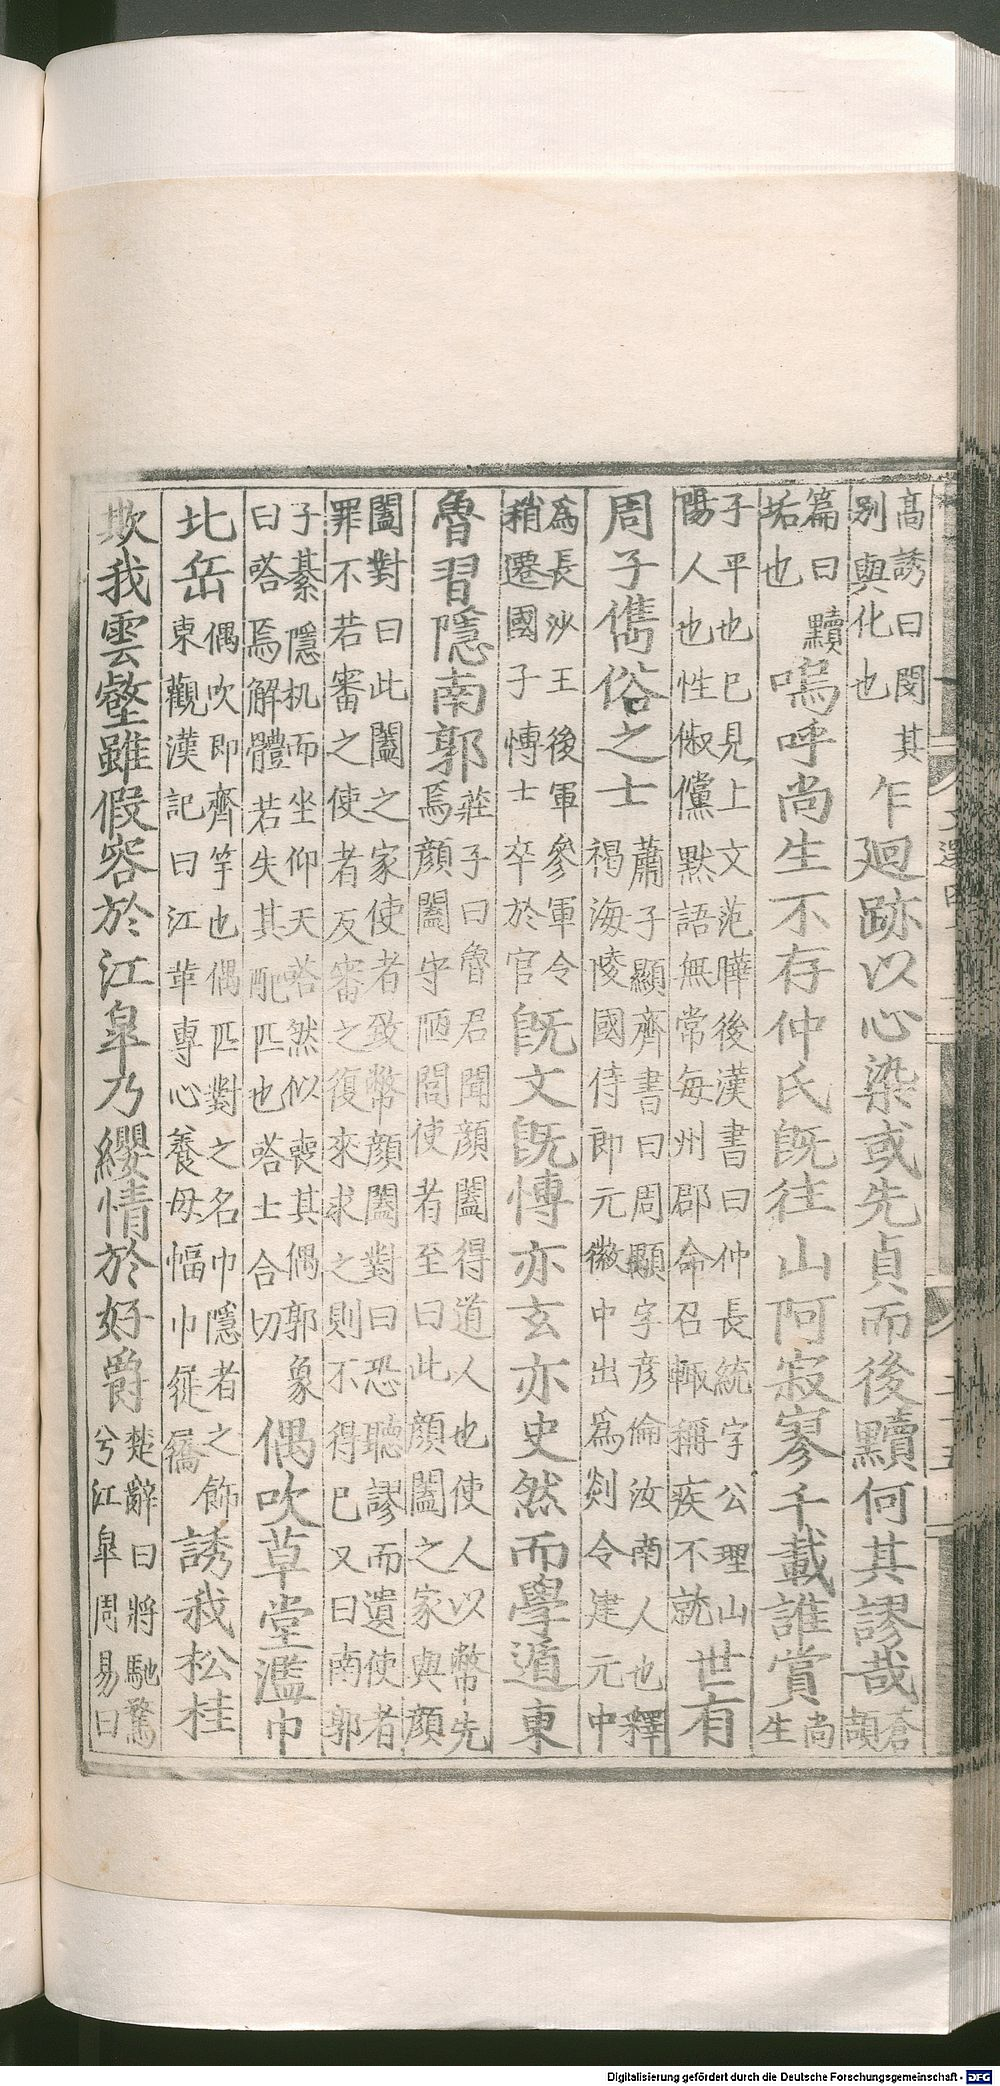 高誘曰閔其別與化也乍廻跡以心染或先貞而後黷何其謬哉蒼頡
篇曰黷垢也嗚呼尚生不存仲氏既往山阿寂寥千載誰賞尚生
子平也已見上文范曄後漢書曰仲長統字公理山陽人也性俶儻默語無常每州郡命召輒稱疾不就世有
周子儁俗之士蕭子顯齊書曰周顒字彥倫汝南人也釋褐海陵國侍郎元徽中出爲剡令建元中
爲長沙王後軍參軍令稍遷國子博士卒於官既文既博亦玄亦史然而學遁東
魯習隱南郭莊子曰魯君聞顏闔得道人也使人以幣先焉顏闔守陋閭使者至曰此顏闔之家與顏
闔對曰此闔之家使者致幣顏闔對曰恐聽謬而遺使者罪不若審之使者反審之復來求之則不得已又曰南郭
子綦隱机而坐仰天嗒然似喪其偶郭象曰嗒焉解體若失其配匹也嗒土合切偶吹草堂濫巾
北岳偶吹即齊竽也偶匹對之名巾隱者之飾東觀漢記曰江革專心養母幅巾屣屩誘我松桂
欺我雲壑雖假容於江皐乃纓情於好爵楚辭曰將馳騖兮江皐周易曰
Digitalisierung gefördert durch die Deutsche Forschungsgemeinschaft - DFG